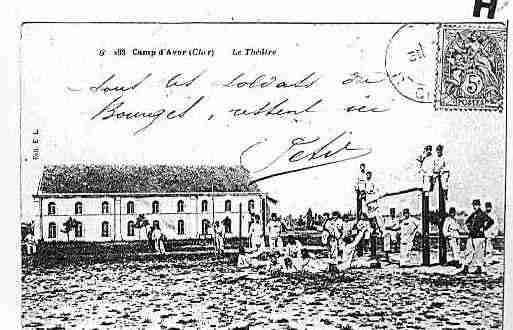 H
G 103 Camp d'Avor (Cher) Le Théâtre
Tous les soldats de
Bourges, restent ici
Petit
Edit. E. L.
5
POSTES